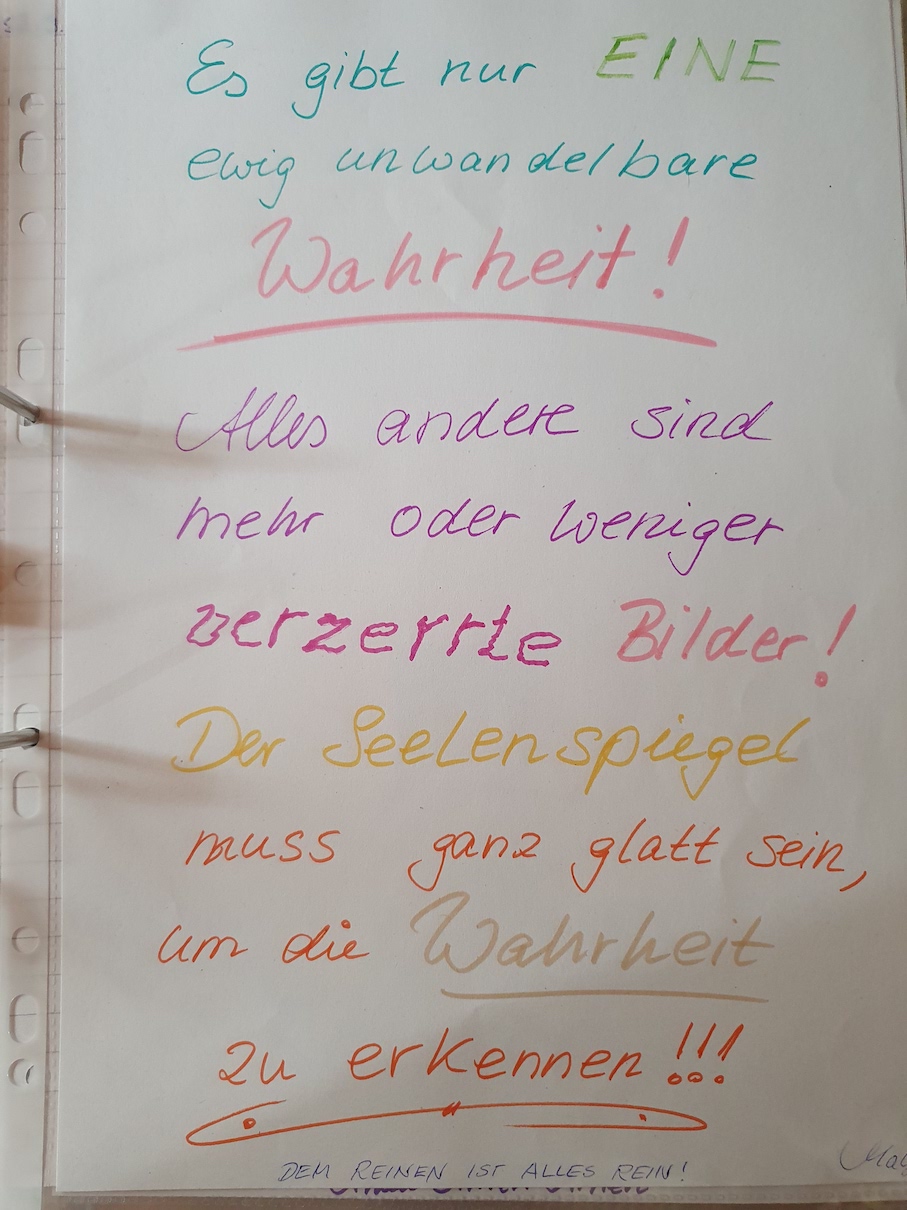 Es gibt nur EINE
ewig unwandelbare
Wahrheit!
Alles andere sind
mehr oder weniger
verzerrte Bilder!
Der Seelenspiegel
muss ganz glatt sein,
um die Wahrheit
zu erkennen!!!
DEM REINEN IST ALLES REIN!